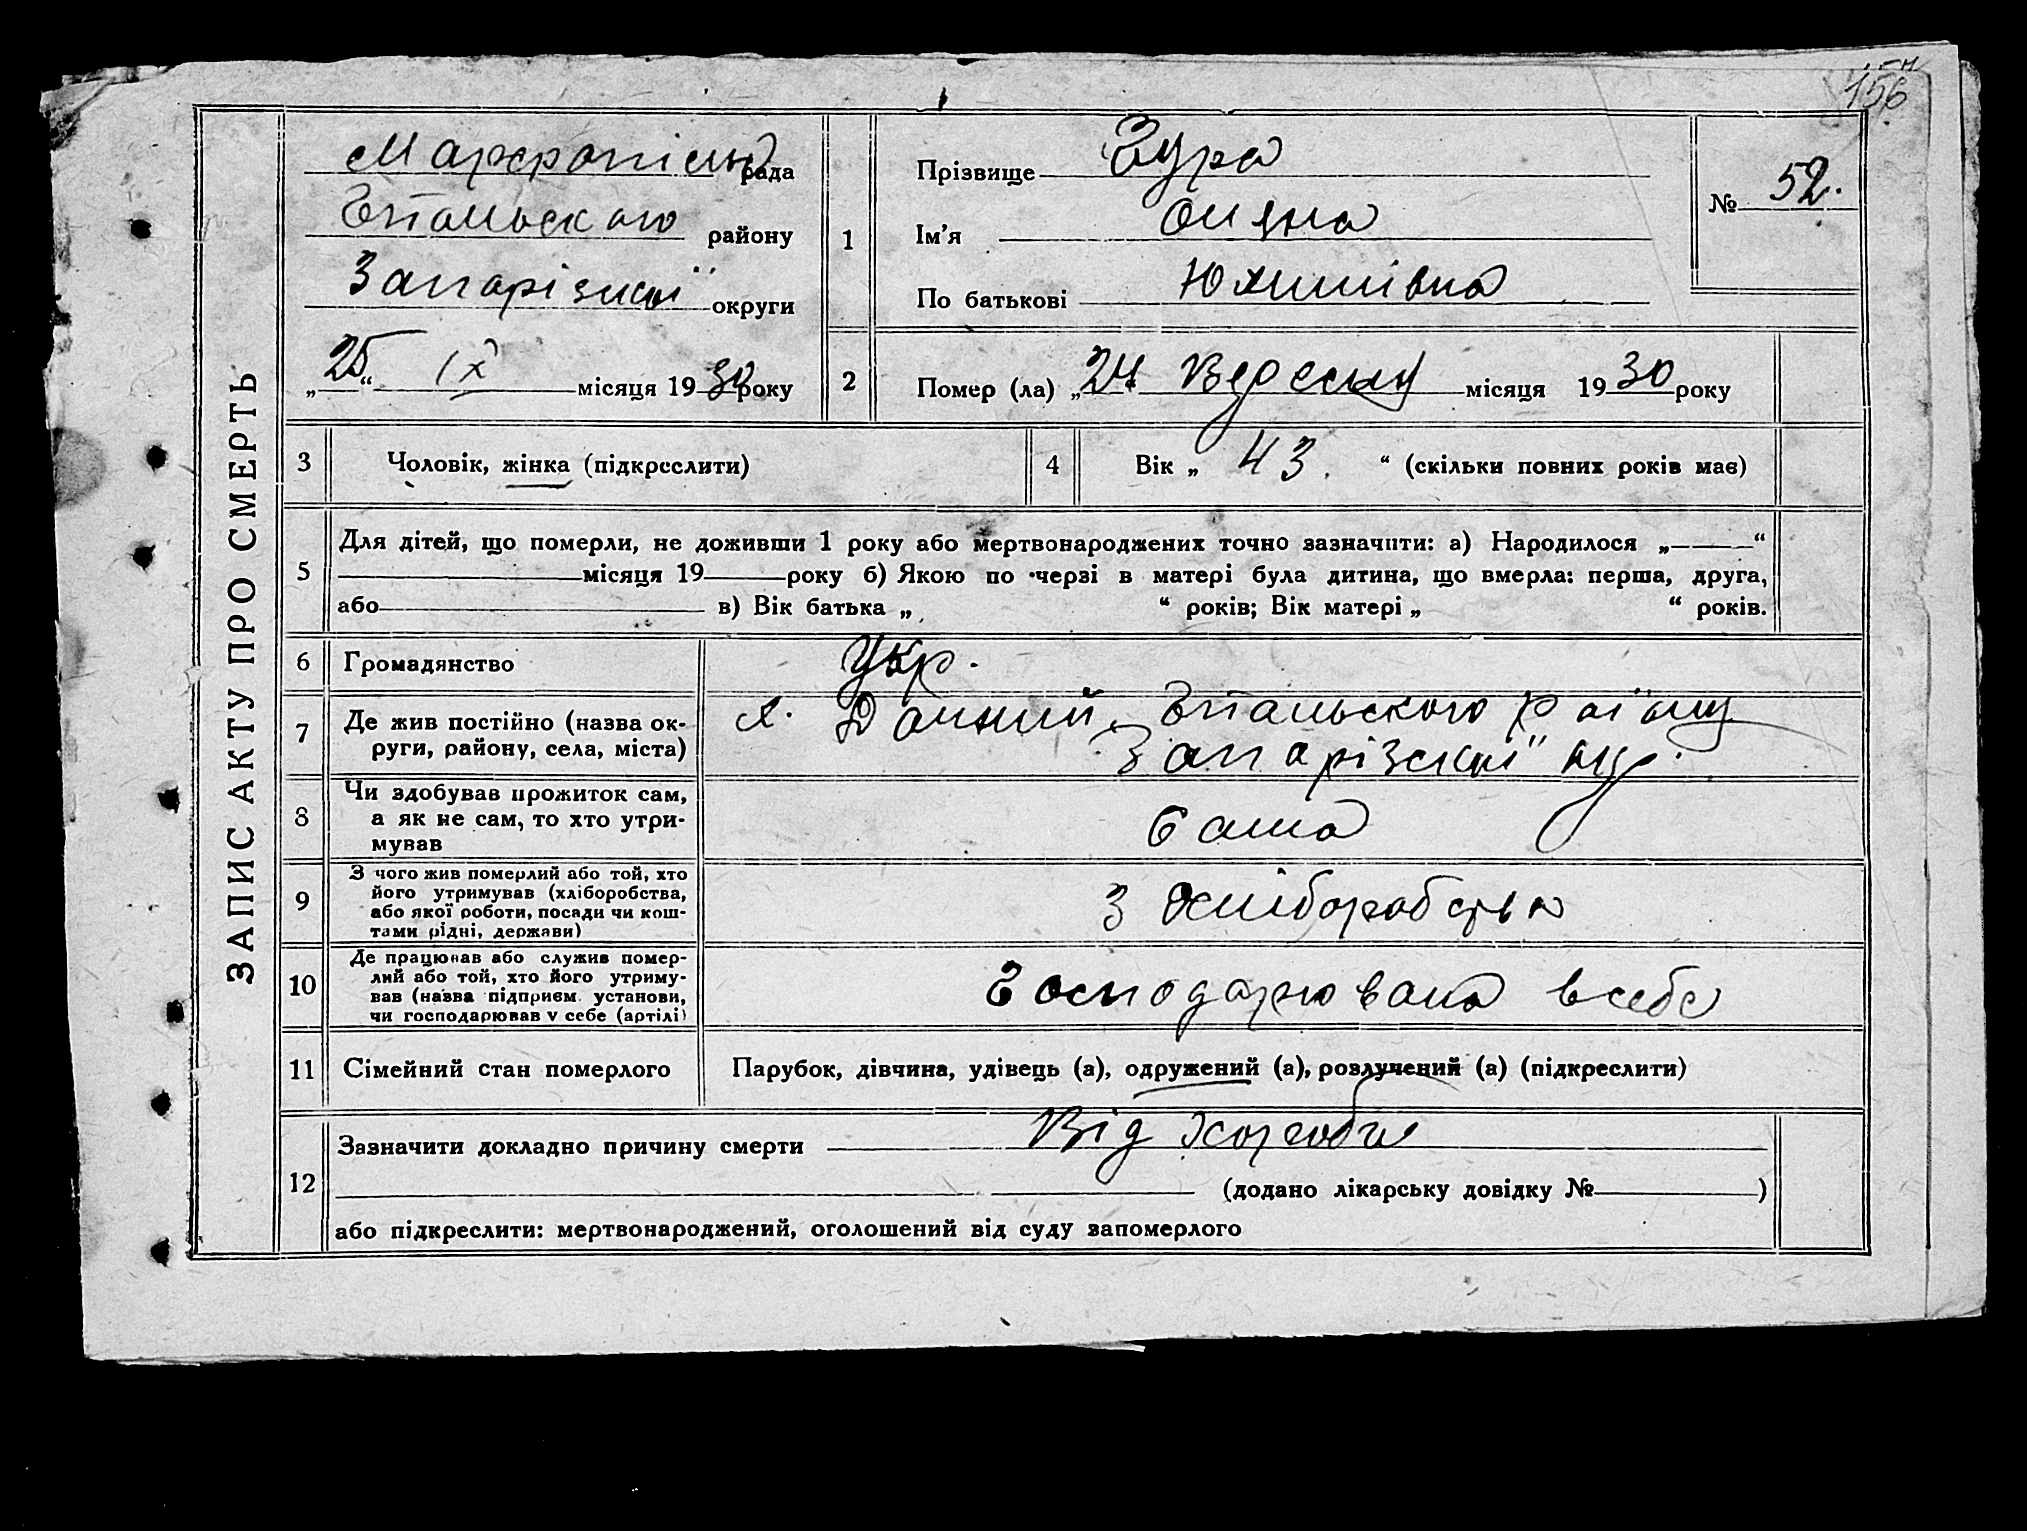 156
ЗАПИС АКТУ ПРО СМЕРТЬ
Марфопіль рада
Гуляйпільського району
Запорізької округи
„25“ IX місяця 1930 року
1
Прізвище Зура
Ім'я
По батькові Юхимівна
№ 52.
2
Помер (ла) „24 Вересня місяця 1930 року
3 Чоловік, жінка (підкреслити)
4 Вік „ 43. “ (скільки повних років має)
5
Для дітей, що померли, не доживши 1 року або мертвонароджених точно зазначити: а) Народилося „ “
місяця 19 року б) Якою по черзі в матері була дитина, що вмерла: перша, друга,
або в) Вік батька „ “ років; Вік матері „ “ років.
6 Громадянство Укр.
7 Де жив постійно (назва округи, району, села, міста)
х.
району
Запорізської окр.
8 Чи здобував прожиток сам,
а як не сам, то хто утри-
мував
Сама
9 З чого жив померлий або той, хто
його утримував (хліборобства,
або якої роботи, посади чи кош-
тами рідні, держави)
З хліборобства
10 Де працював або служив помер-
лий або той, хто його утриму-
вав (назва підприєм. установи,
чи господарював у себе (артілі)
Господарювала в себе
11 Сімейний стан померлого Парубок, дівчина, удівець (а), одружений (а), розлучений (а) (підкреслити)
12
Зазначити докладно причину смерти Від хороби
(додано лікарську довідку № )
або підкреслити: мертвонароджений, оголошений від суду запомерлого